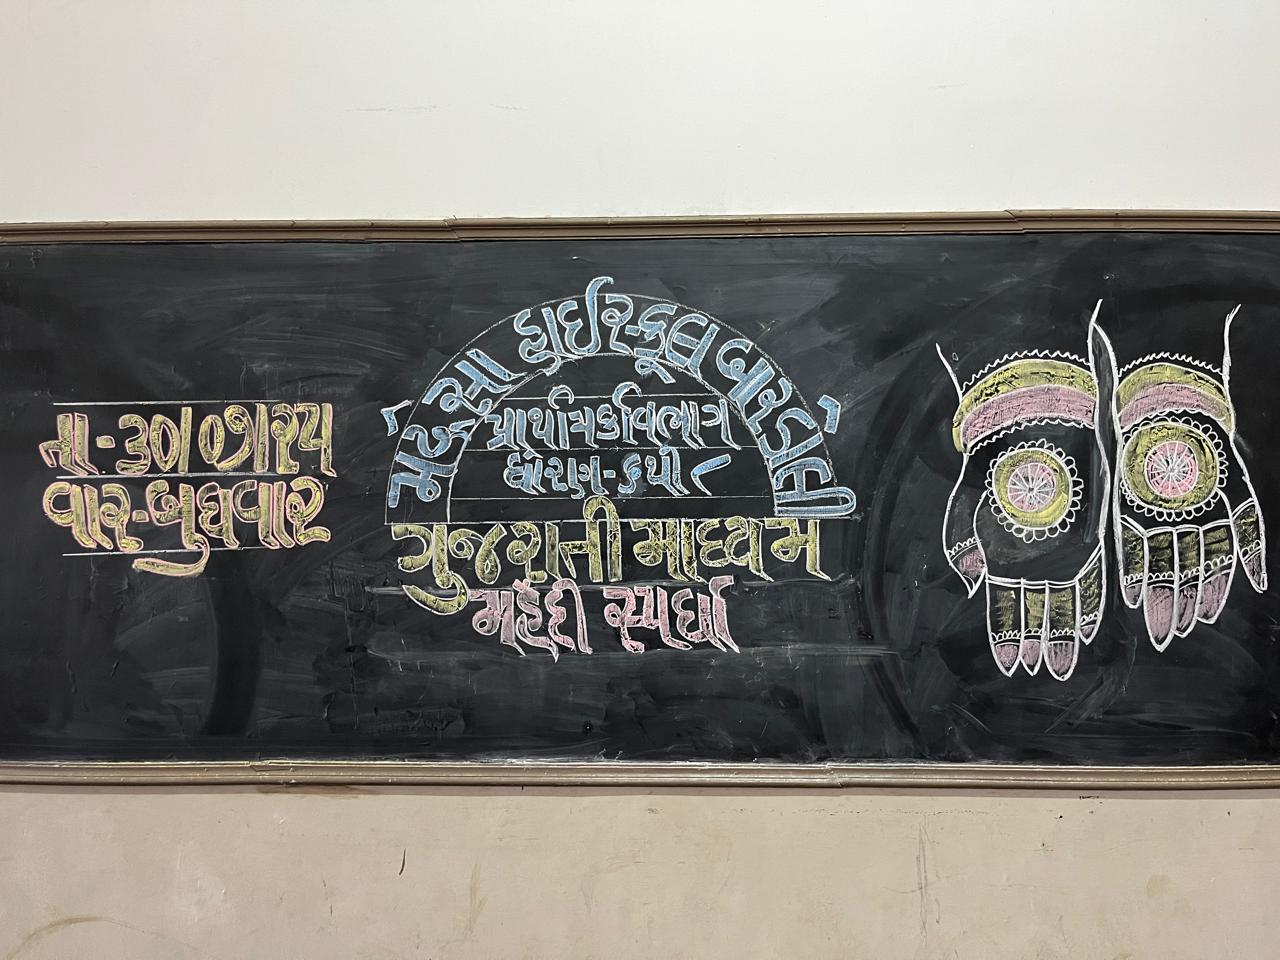 તા-૩૦।૦૭।૨૫
વાર-બુધવાર
મદ્રેસા હાઈસ્કૂલ બારડોલી
પ્રાથમિકવિભાગ
ધોરણ-૬થી ૮
ગુજરાતી માધ્યમ
મહેંદી સ્પર્ધા